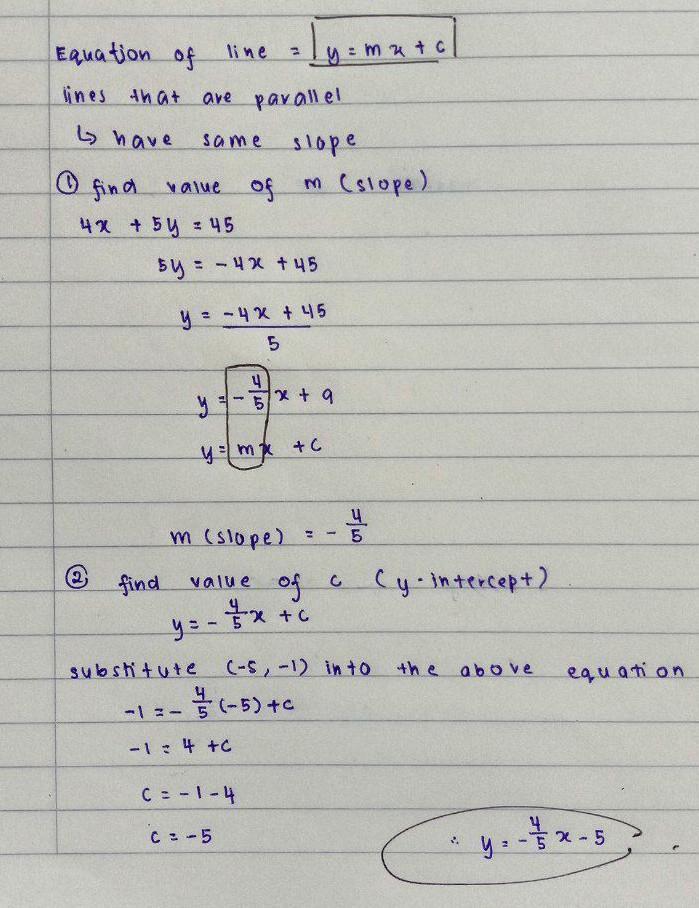 Equation of line = y = mx + c
lines that are parallel
↳ have same slope
① find value of m (slope)
4x + 5y = 45
5y = -4x + 45
y = (-4x + 45)/5
y = -4/5 x + 9
y = mx + c
m (slope) = -4/5
② find value of c (y-intercept)
y = -4/5 x + c
substitute (-5, -1) into the above equation
-1 = -4/5 (-5) + c
-1 = 4 + c
c = -1 - 4
c = -5
∴ y = -4/5 x - 5